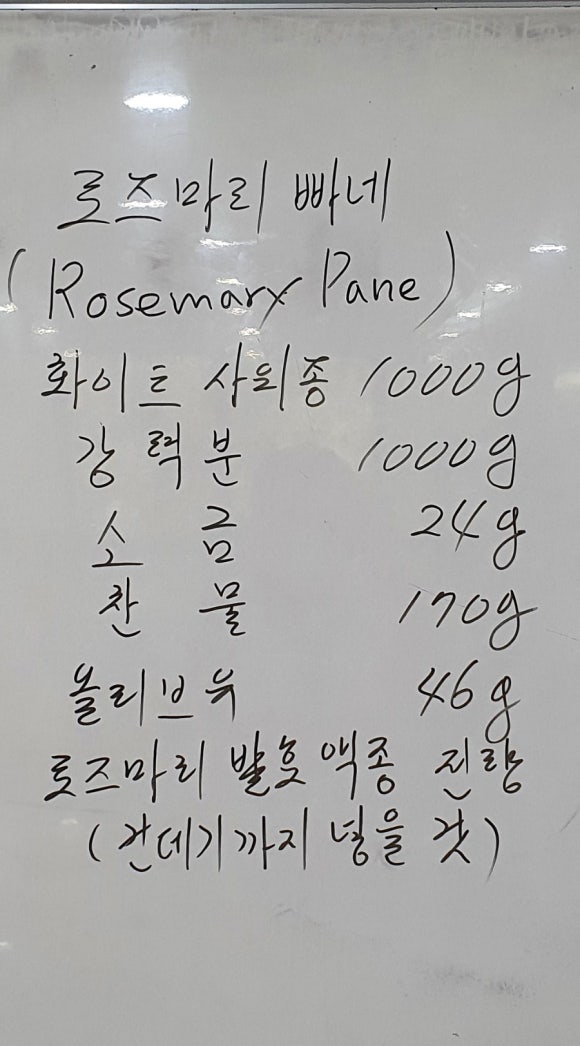 로즈마리 빠네
(Rosemary Pane)
화이트 사워종 1000g
강력분 1000g
소금 24g
찬물 170g
올리브유 46g
로즈마리 발효액종 전량
(건데기까지 넣을 것)